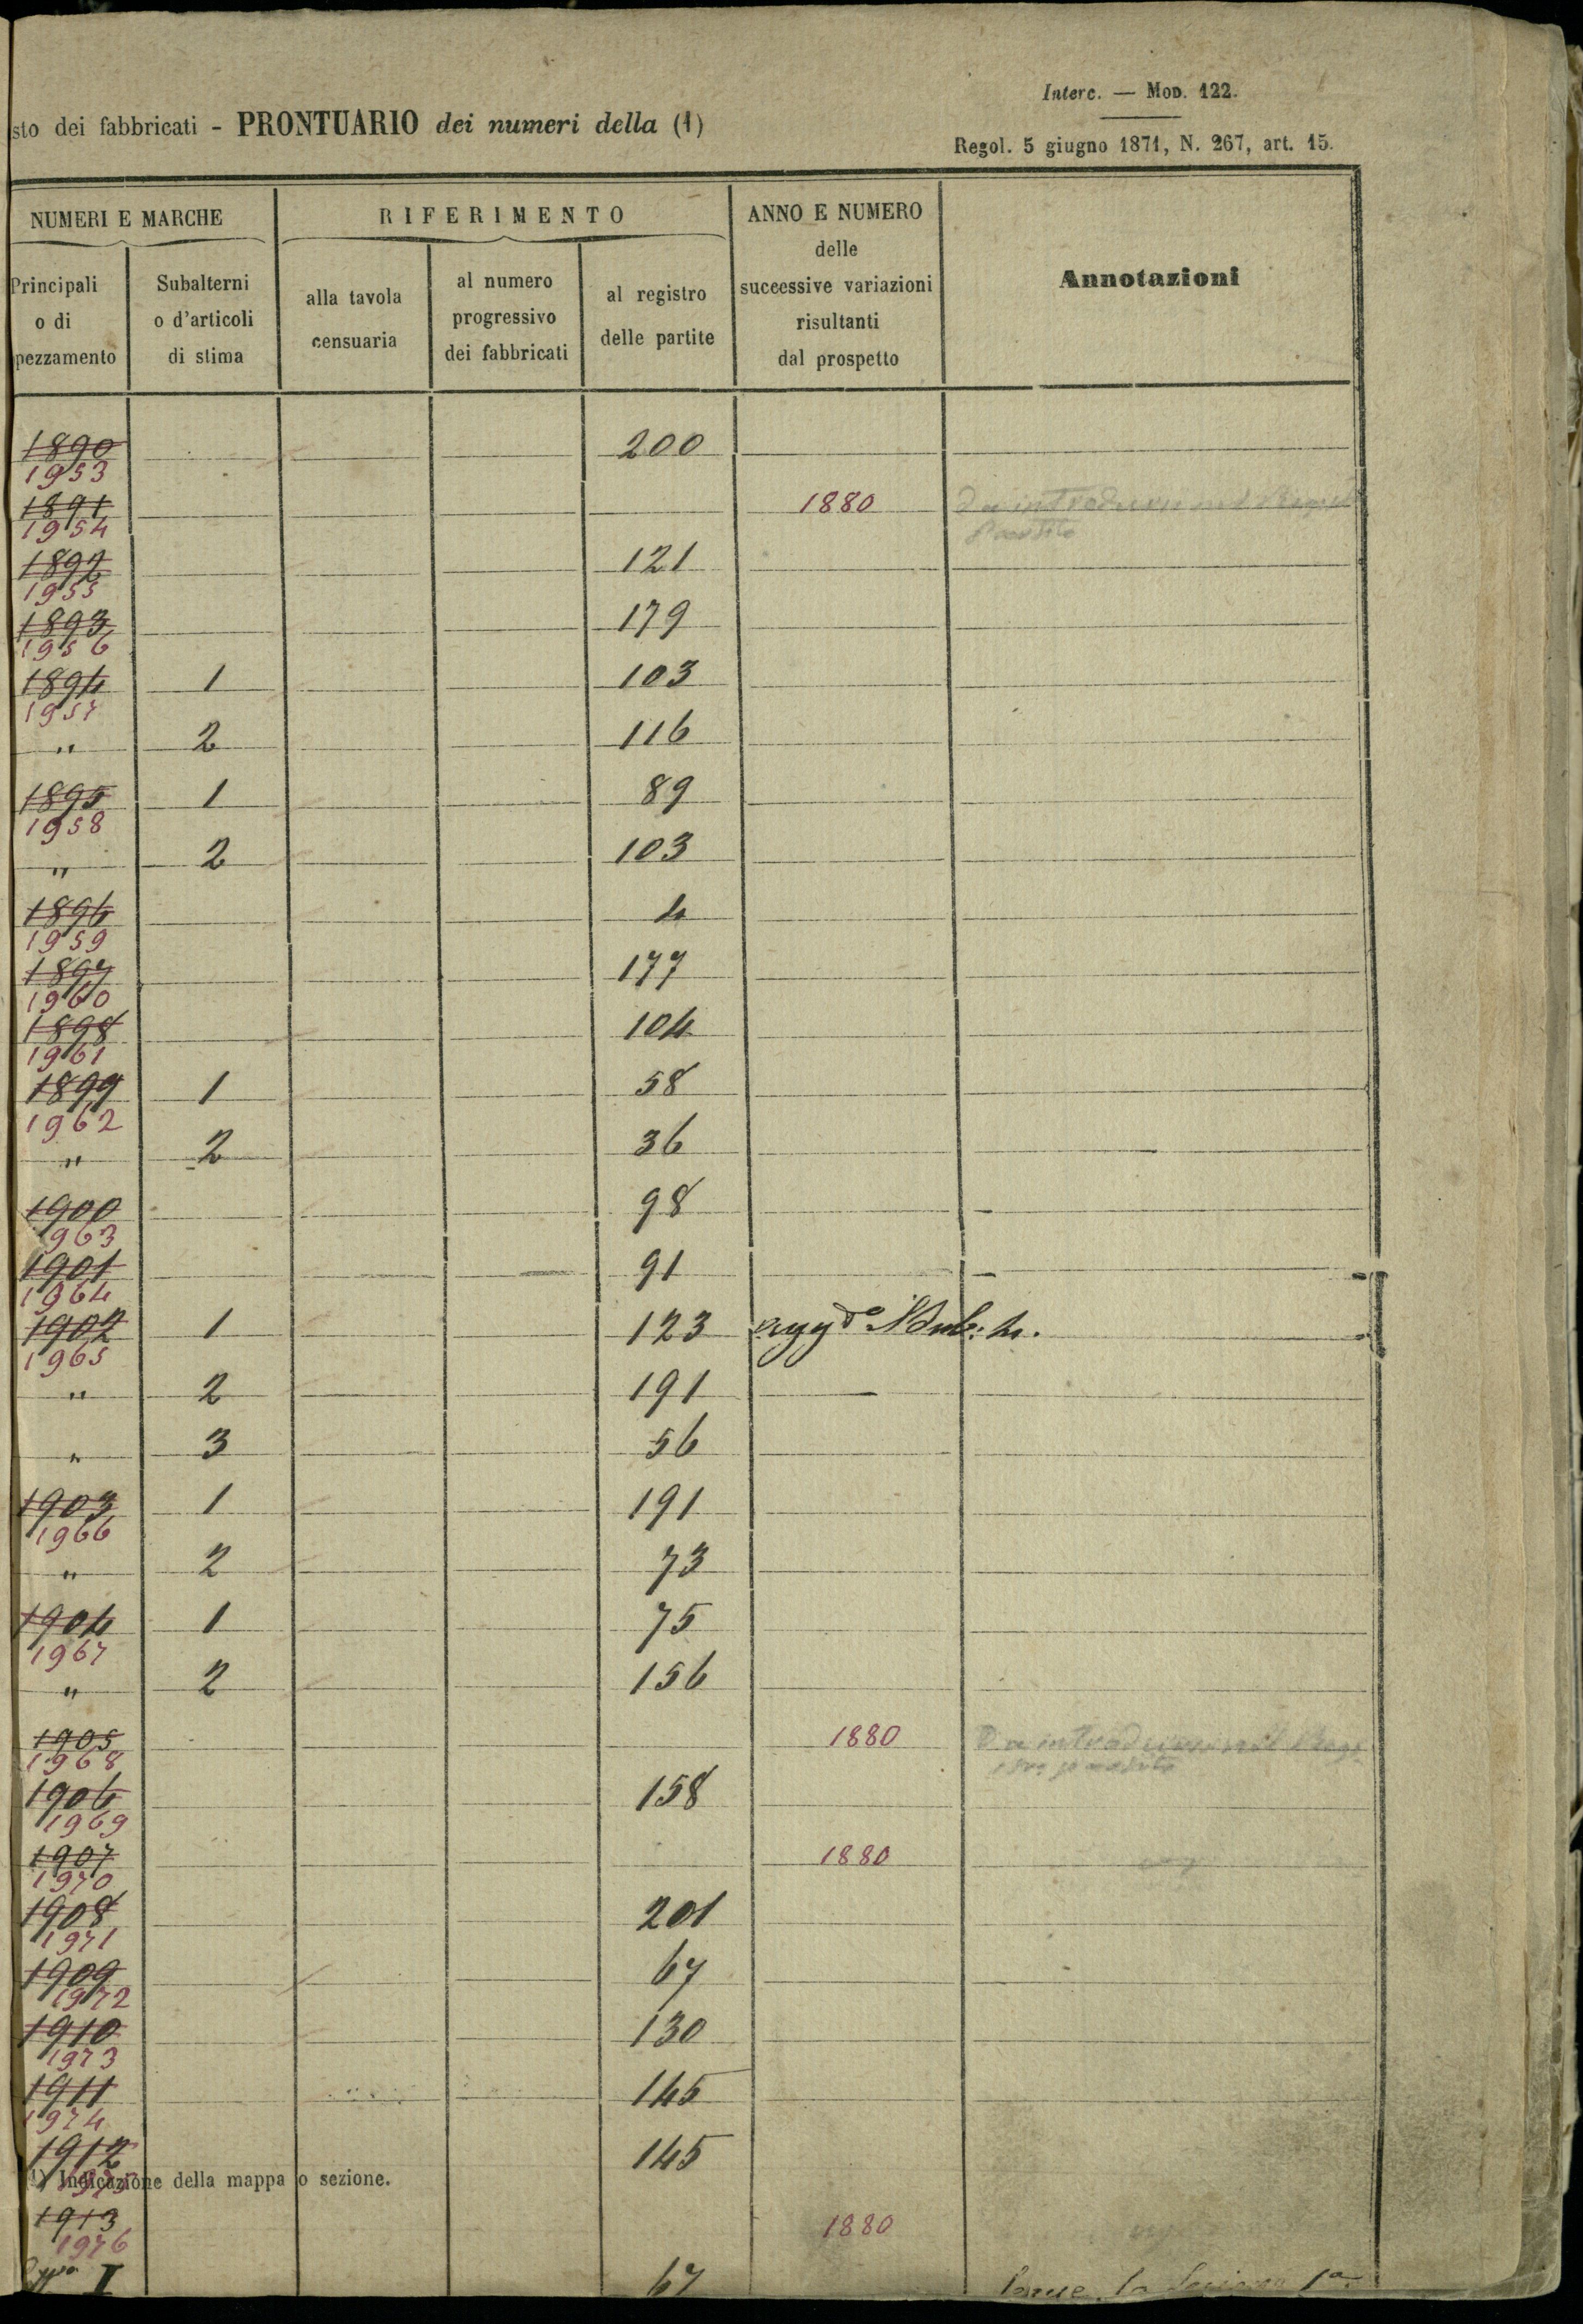 Interc. — Mod. 122.
sto dei fabbricati - PRONTUARIO dei numeri della (1)
Regol. 5 giugno 1871, N. 267, art. 15.
NUMERI E MARCHE RIFERIMENTO ANNO E NUMERO delle successive variazioni risultanti dal prospetto Annotazioni
Principali o di pezzamento Subalterni o d'articoli di stima alla tavola censuaria al numero progressivo dei fabbricati al registro delle partite
1890 200
1953
1891 1880 Da introdursi nel
1954
1892 121
1955
1893 179
1956
1894 1 103
1957
" 2 116
1895 1 89
1958
" 2 103
1896 4
1959
1897 177
1960
1898 104
1961
1899 1 58
1962
" 2 36
1900 98
1963
1901 91
1964
1902 1 123
1965
" 2 191 —
" 3 56
1903 1 191
1966
" 2 73
1904 1 75
1967
" 2 156
1905 1880 Da introdursi nel
1968
1906 158
1969
1907 1880
1970
1908 201
1971
1909 67
1972
1910 130
1973
1911 145
1974
1912 145
(1) Indicazione della mappa o sezione.
1913 1880
1976
I 67 la Sezione 1a